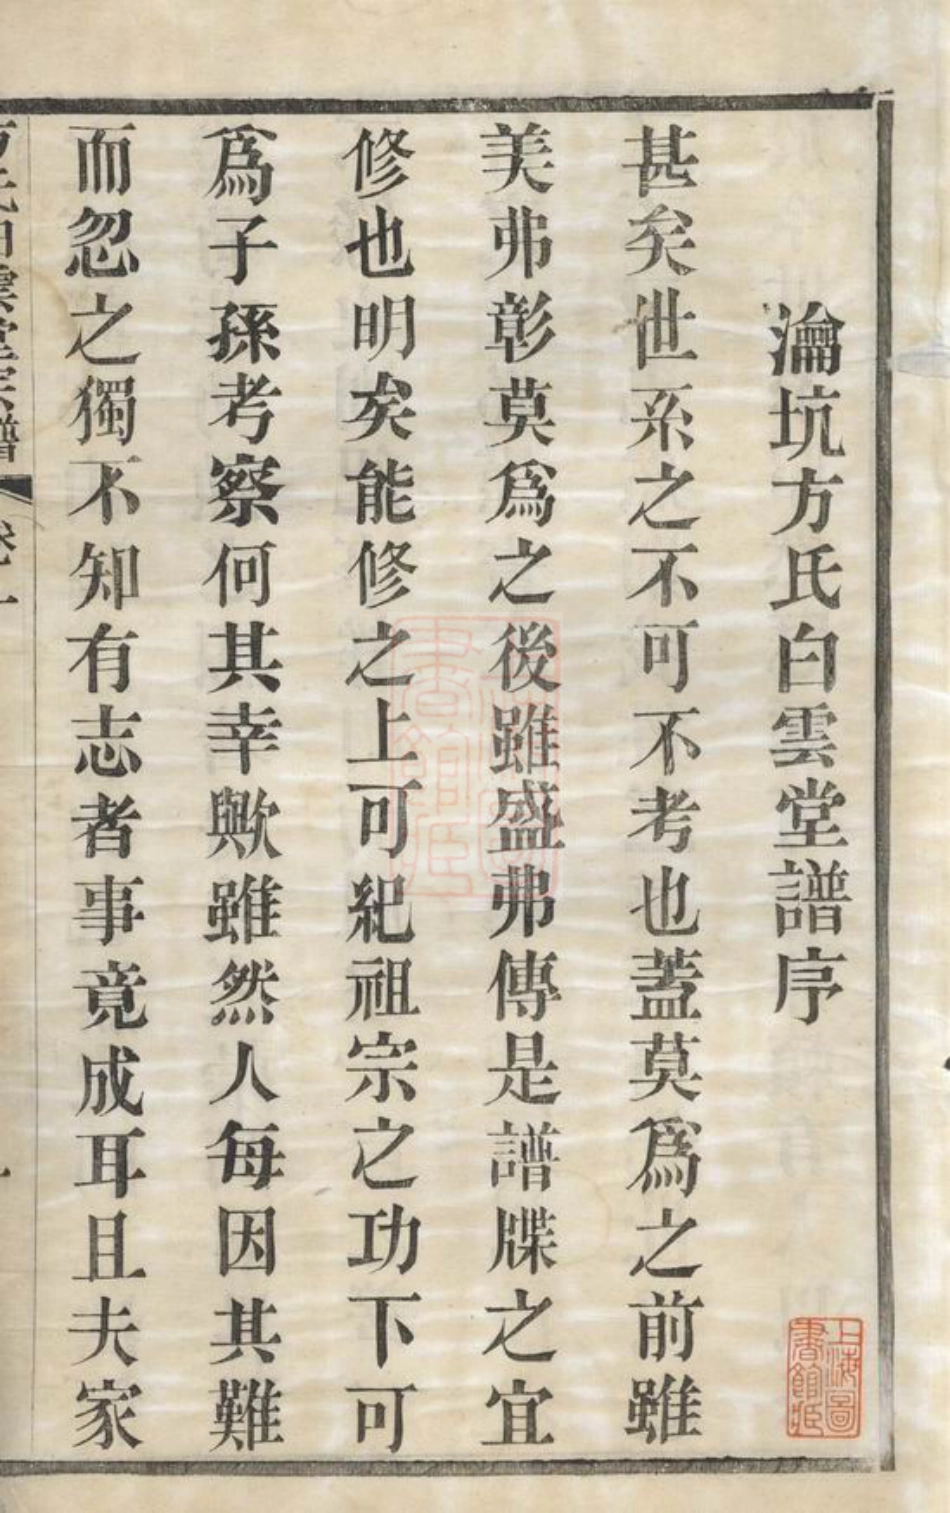 瀹坑方氏白雲堂譜序
甚矣世系之不可不考也蓋莫爲之前雖
美弗彰莫爲之後雖盛弗傳是譜牒之宜
修也明矣能修之上可紀祖宗之功下可
爲子孫考察何其幸歟雖然人每因其難
而忽之獨不知有志者事竟成耳且夫家
方氏白雲堂宗譜 卷一 一
上海圖書館藏